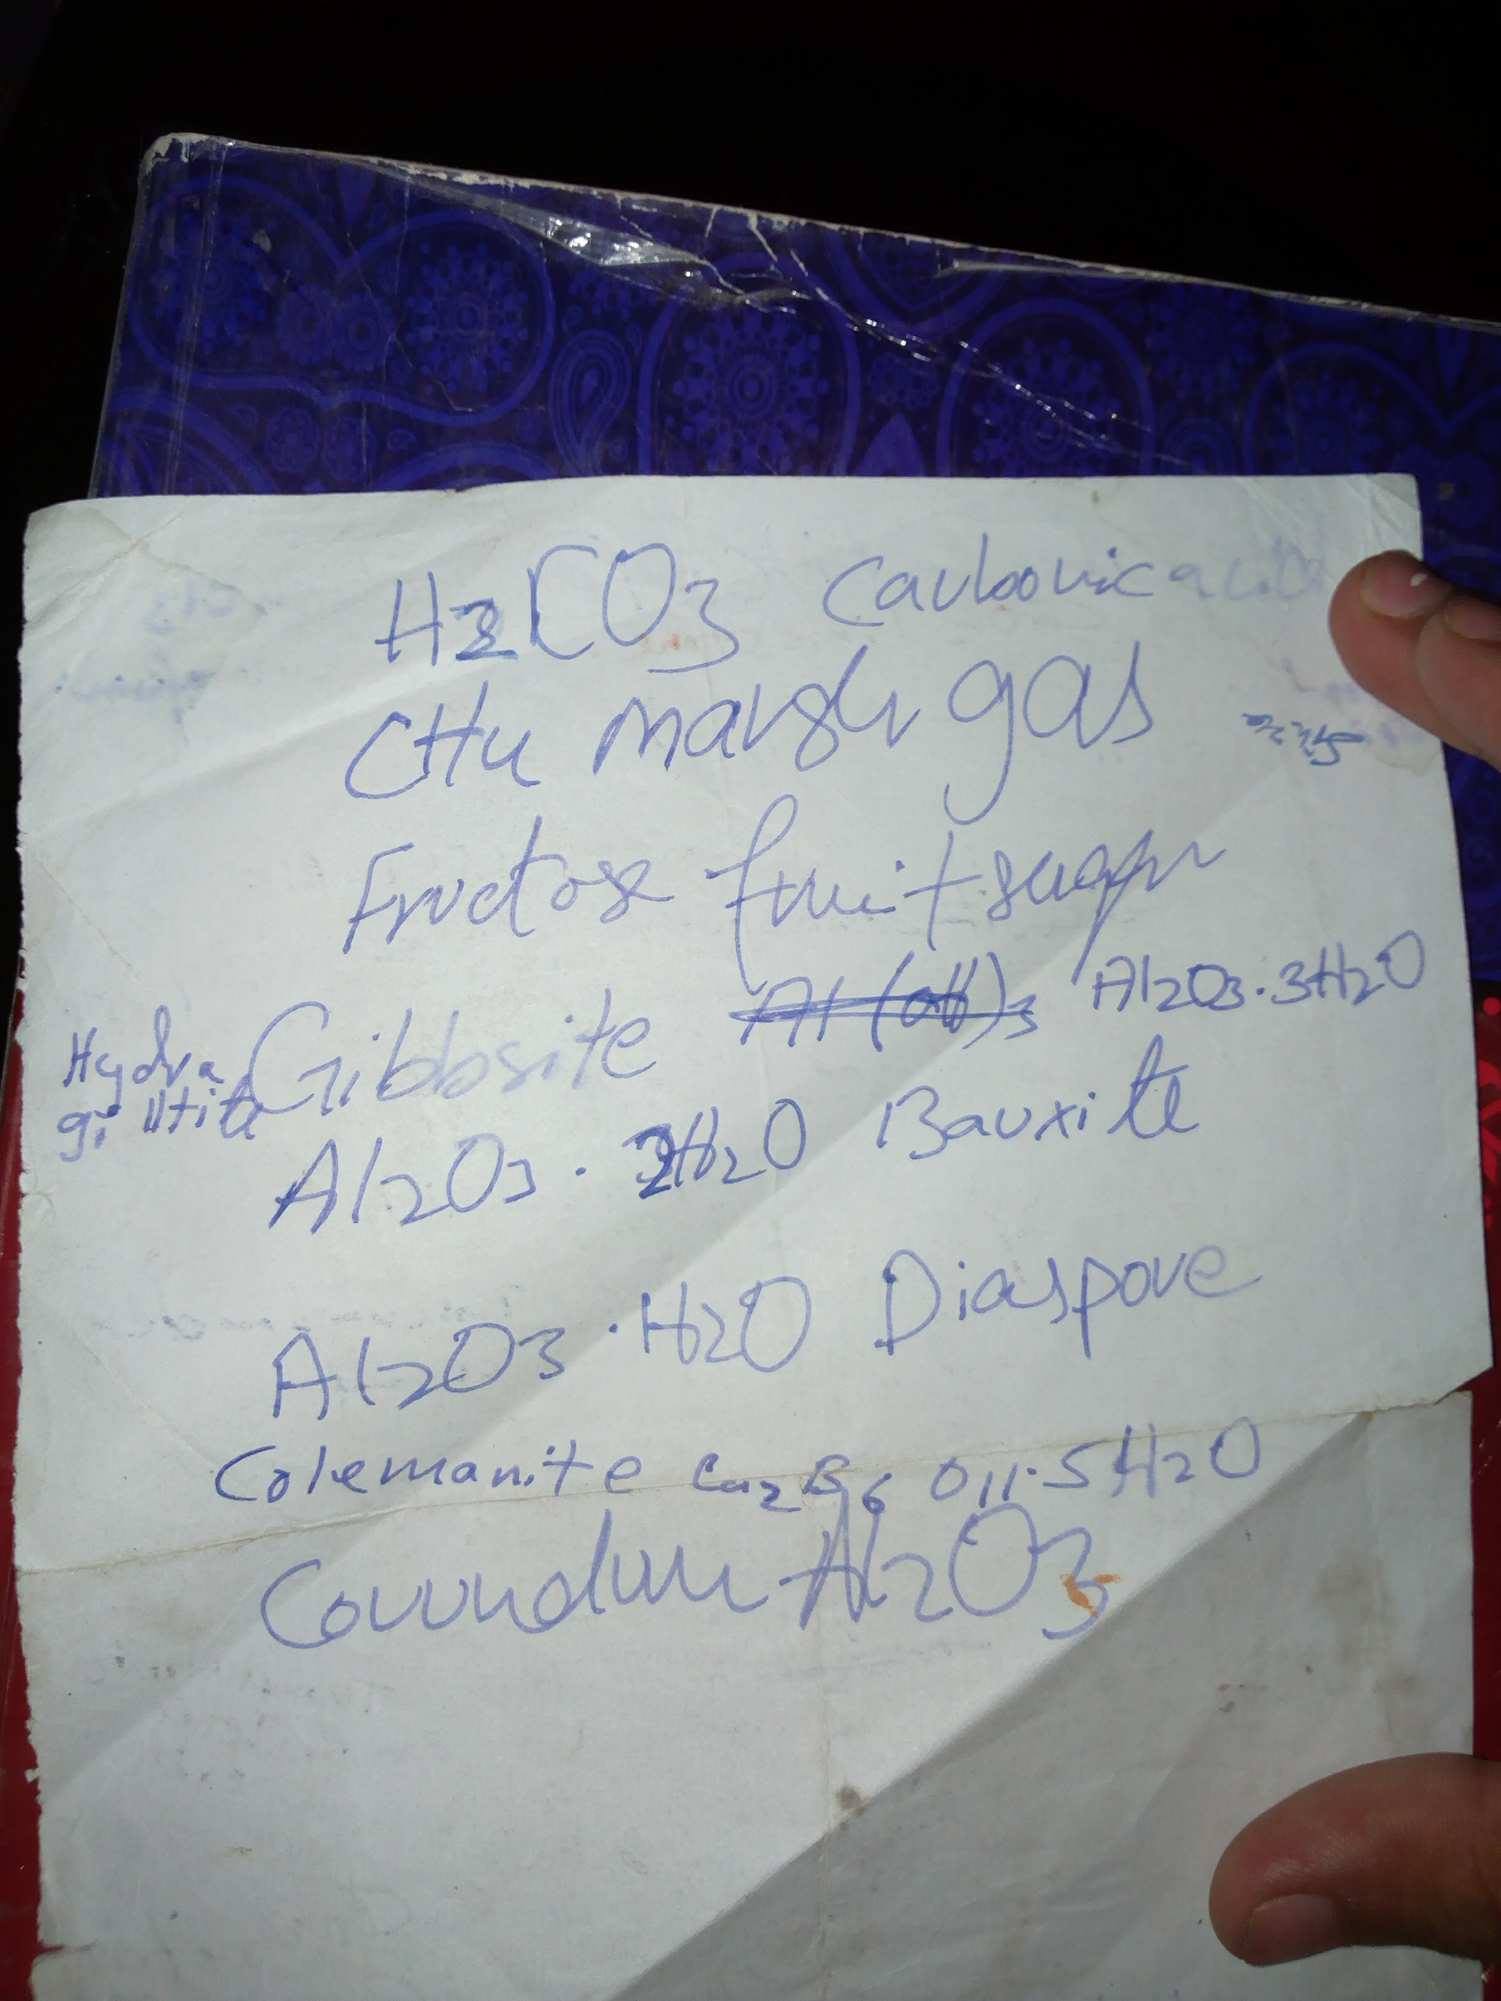 H2CO3 Carbonic acid
CH4 marsh gas
Fructose fruit sugar
Hydra gilltite Gibbsite Al(OH)3 Al2O3.3H2O
Al2O3.2H2O Bauxite
Al2O3.H2O Diaspore
Colemanite Ca2B6O11.5H2O
Corundum Al2O3